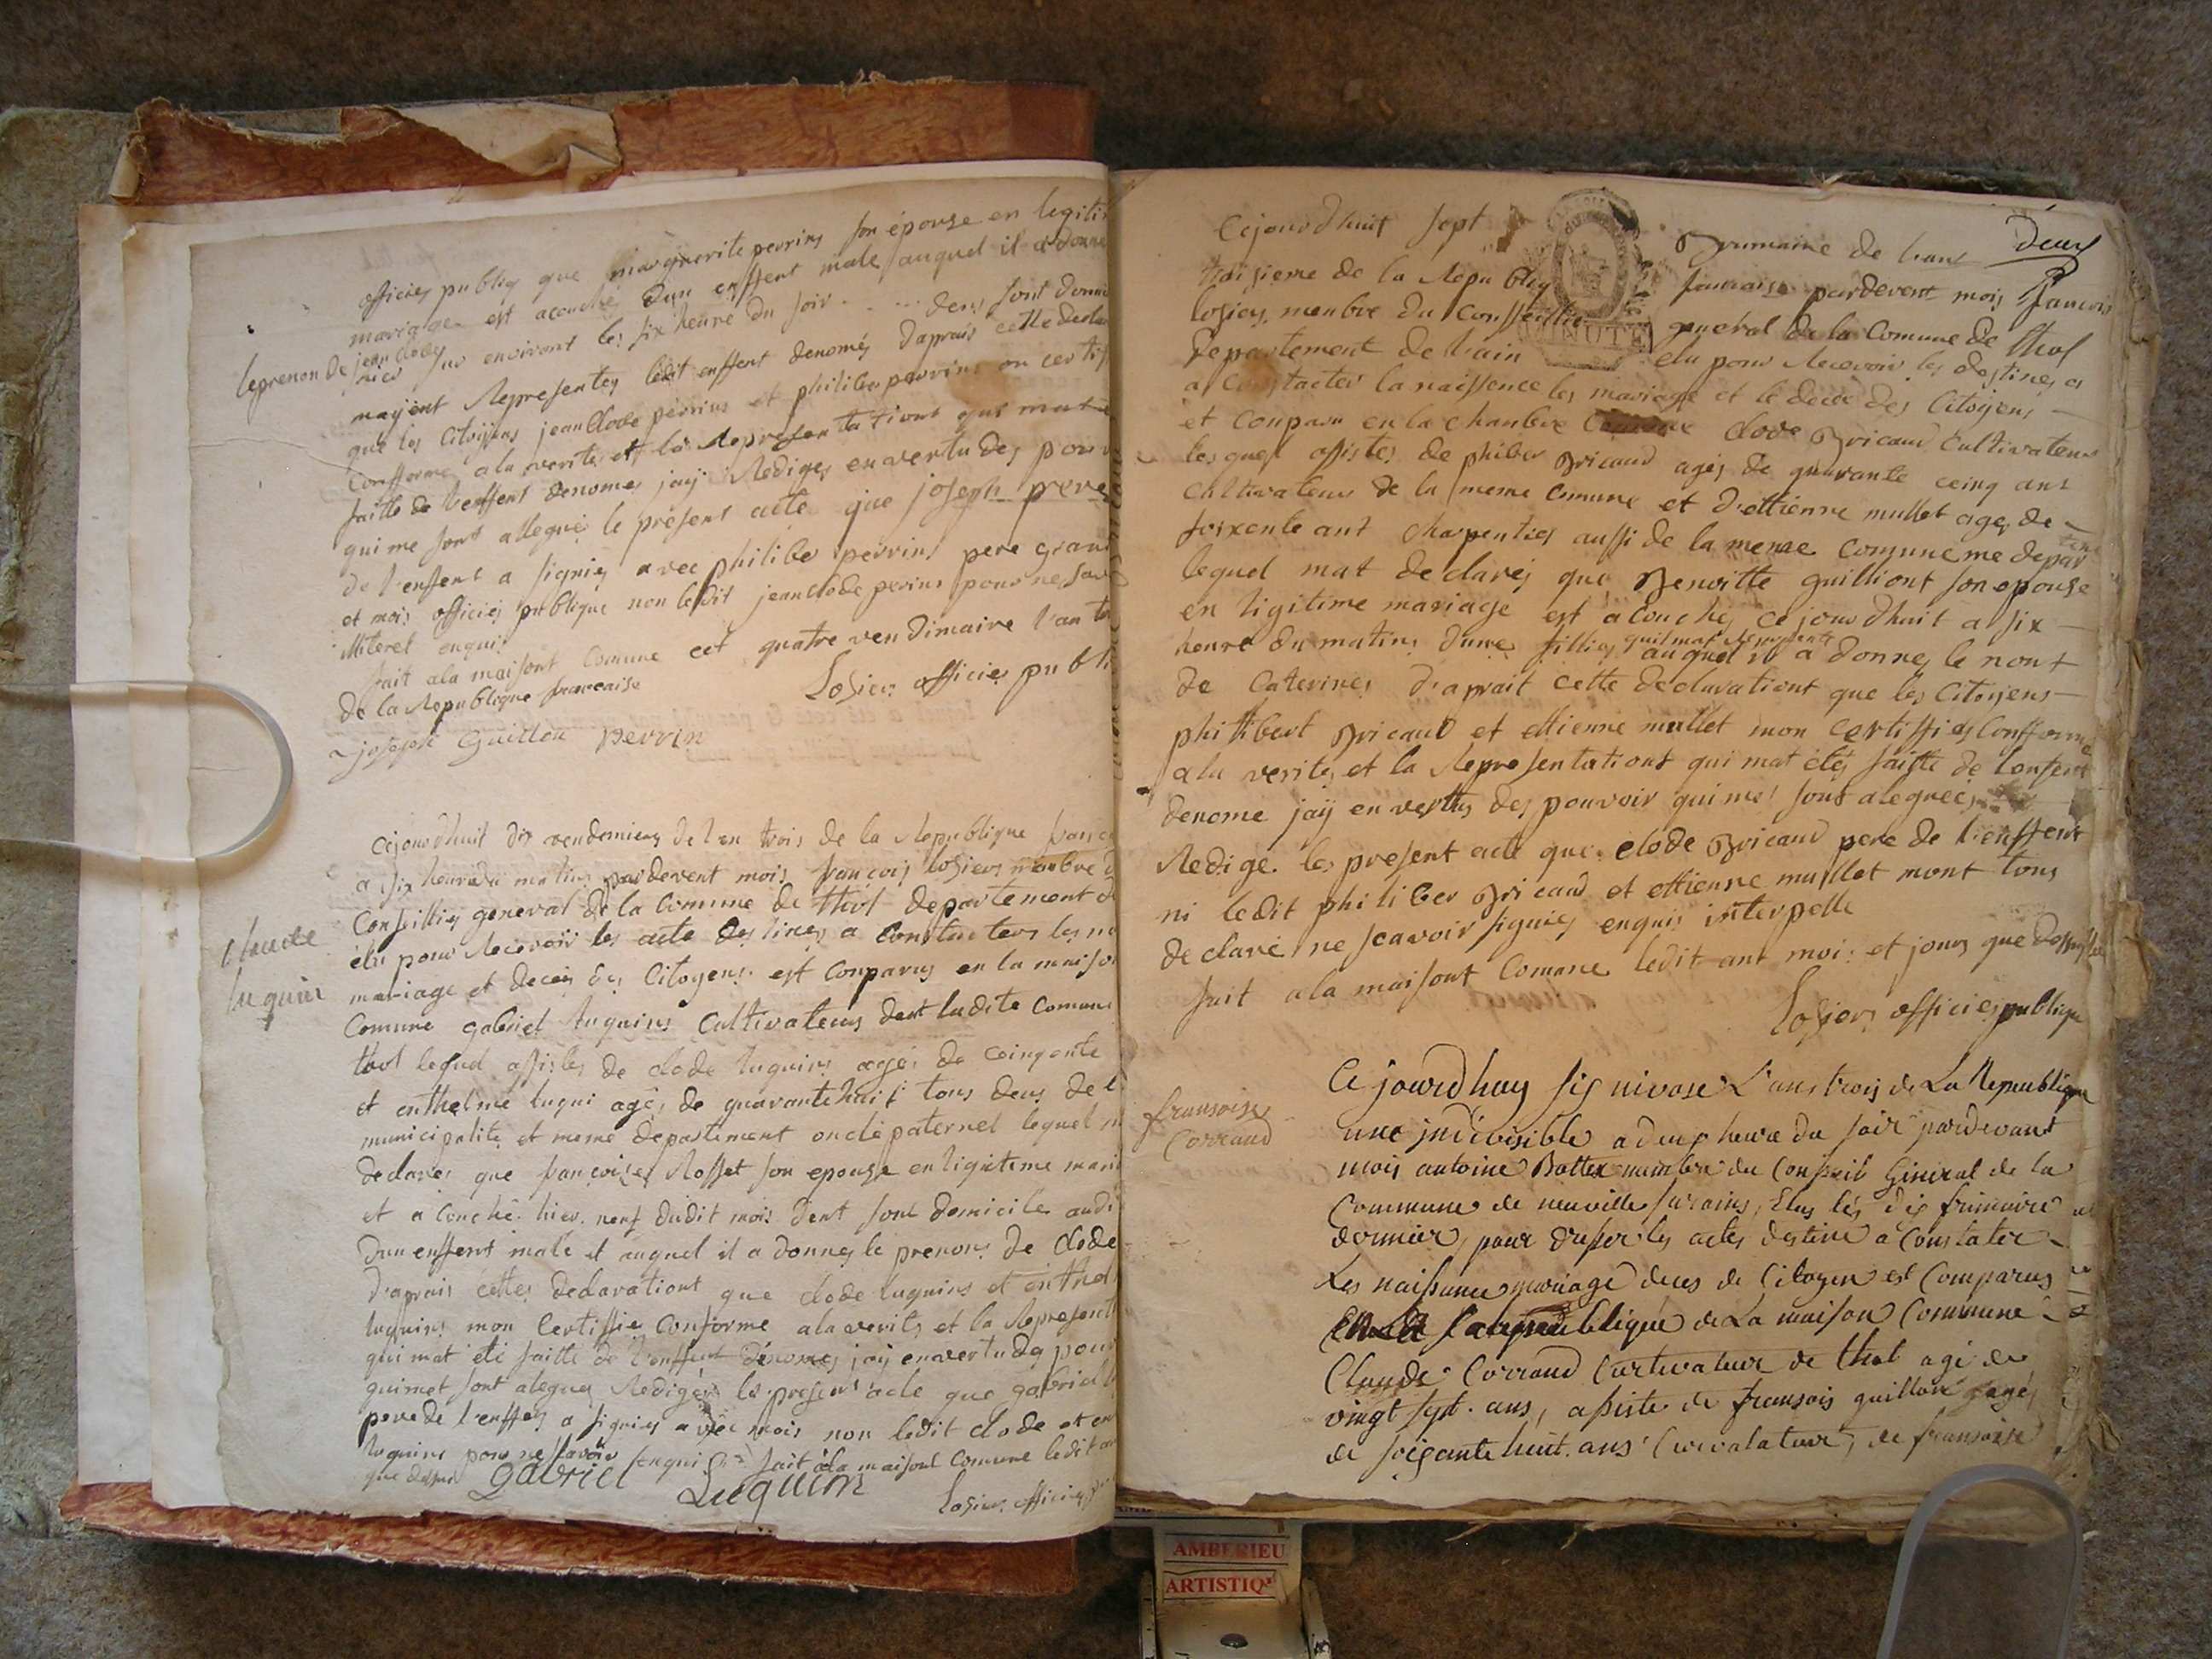 officies publiq que marguerite perrins son épouse en legiti
mariage est acouché dun enffent male auquel il a donné
leprenon de jean clode
nier sur environt les six heure du soir dens sont domi
mayent Representes ledit enffent denomés daprais cette declar
que les Citoyens jean Clode perrins et philiber perrins on certif
Confforme ala verite et la Representationt qui mat
faitte de lenffent denomes jay Rediges envertu des pouv
qui me sont allegués le présent acte que joseph pere
de lenffent a signiés avec philiber perrins pere grand
et mois officiés publique non ledit jean Clode perins pour ne sav
illiteret enquis
fait ala maisont Comune cet quatre vendimaire l'an tr
de la Republique francaise
Losier officies publi
joseph Guillon perrin
Cejourdhuit dix vendemiere de lan trois de la Republique franc
a six heure du matins pardevent mois francois losiers menbre d
Conseillies general de la Comune de thol departement d
élu pour Recevoir les acte destines a Constacters les n
mariage et deces des Citoyens est Conparus en la maiso
Claude
luquin
Comune gabriel luquins Cultivateurs dent ladite Comune
thol lequel assistes de clode luquins agés de cinqente
et enthelme luqui agés de quarantehuit tous deus de l
municipalite et meme departement oncle paternel lequel m
declares que francoises Rosset son epouse en ligitime mari
et a Couché hier neuf dudit mois dent sont domicile audi
dun enffent male et auquel il a donnes le prenons de clode
dapraïs cettes declarationt que clode luquins et enthel
luquins mon Certiffie Conforme ala verites et la Represent
qui mat eté faitte de lenffent dénomes jay envertu des pouv
qui met sont alegues Redigés le present acte que gabriel l
pere de lenffen a signies avec mois non ledit clode et en
luquins pour ne savoir enqui fait àla maisont Comune ledit an
que desus
gabriel Luquin
Losier officies p
deux
Cejourdhuit sept Brumaire de lant
troisieme de la Republiq francaise pardevent mois francois
losiers menbre du Conseillie general de la Comune de thol
Departement de lain elu pour Recevoir les destines a
a Constacter la naissence les mariage et le decé des Citoyens
et Conparu en la chanbre Comune clode Bricaud Cultivateur
lesquel assistes de philiber Bricaud agés de quarante ceinq ans
Cultivateur de la meme Comune et d'ettienne mullet ages de
soixente ant charpenties aussi de la meme Comune me depar
lequel mat declarés que Benoitte guilliont son epouse
en ligitime mariage est acouches cejourdhuit a six
quil mat Represente
heure du matins dunes fillies auquel il a donnes le nont
de Caterines d'aprait cette declarationt que les Citoyens
philibert Bricaud et ettienne mullet mon Certiffies Confforme
ala verites et la Representationt qui mat étés faitte de lenfent
denome jay en vertus des pouvoir qui mes sont alegueés
Redige les present acte que clode Bricaud pere de lienffent
ni ledit philiber Bricaud et ettienne mullet mont tous
declaré ne scavoir signiés enquis interpelle
fait ala maisont Comune ledit ant mois et jours que desus
Losiers officies publique
fransoise
Corraud
Ce jourdhuy six nivose L'ans trois de La Republique
une indivisible a deux heure du soir pardevant
mois antoine Battex mambre du Conseil Géneral de la
Commune de neuville sur ains, Elus les dix frimaire
dernier, pour dresser les actes destiné a Constater
Les naissance mariage deces de Citoyen est Comparus
publique de La maison Commune
Claude Corraud Curtivateur de thol agé de
vingt sept ans, assisté de fransois guillon agés
de soixante huit ans Curvatateur, de fransoise
AMBERIEU
ARTISTIQ